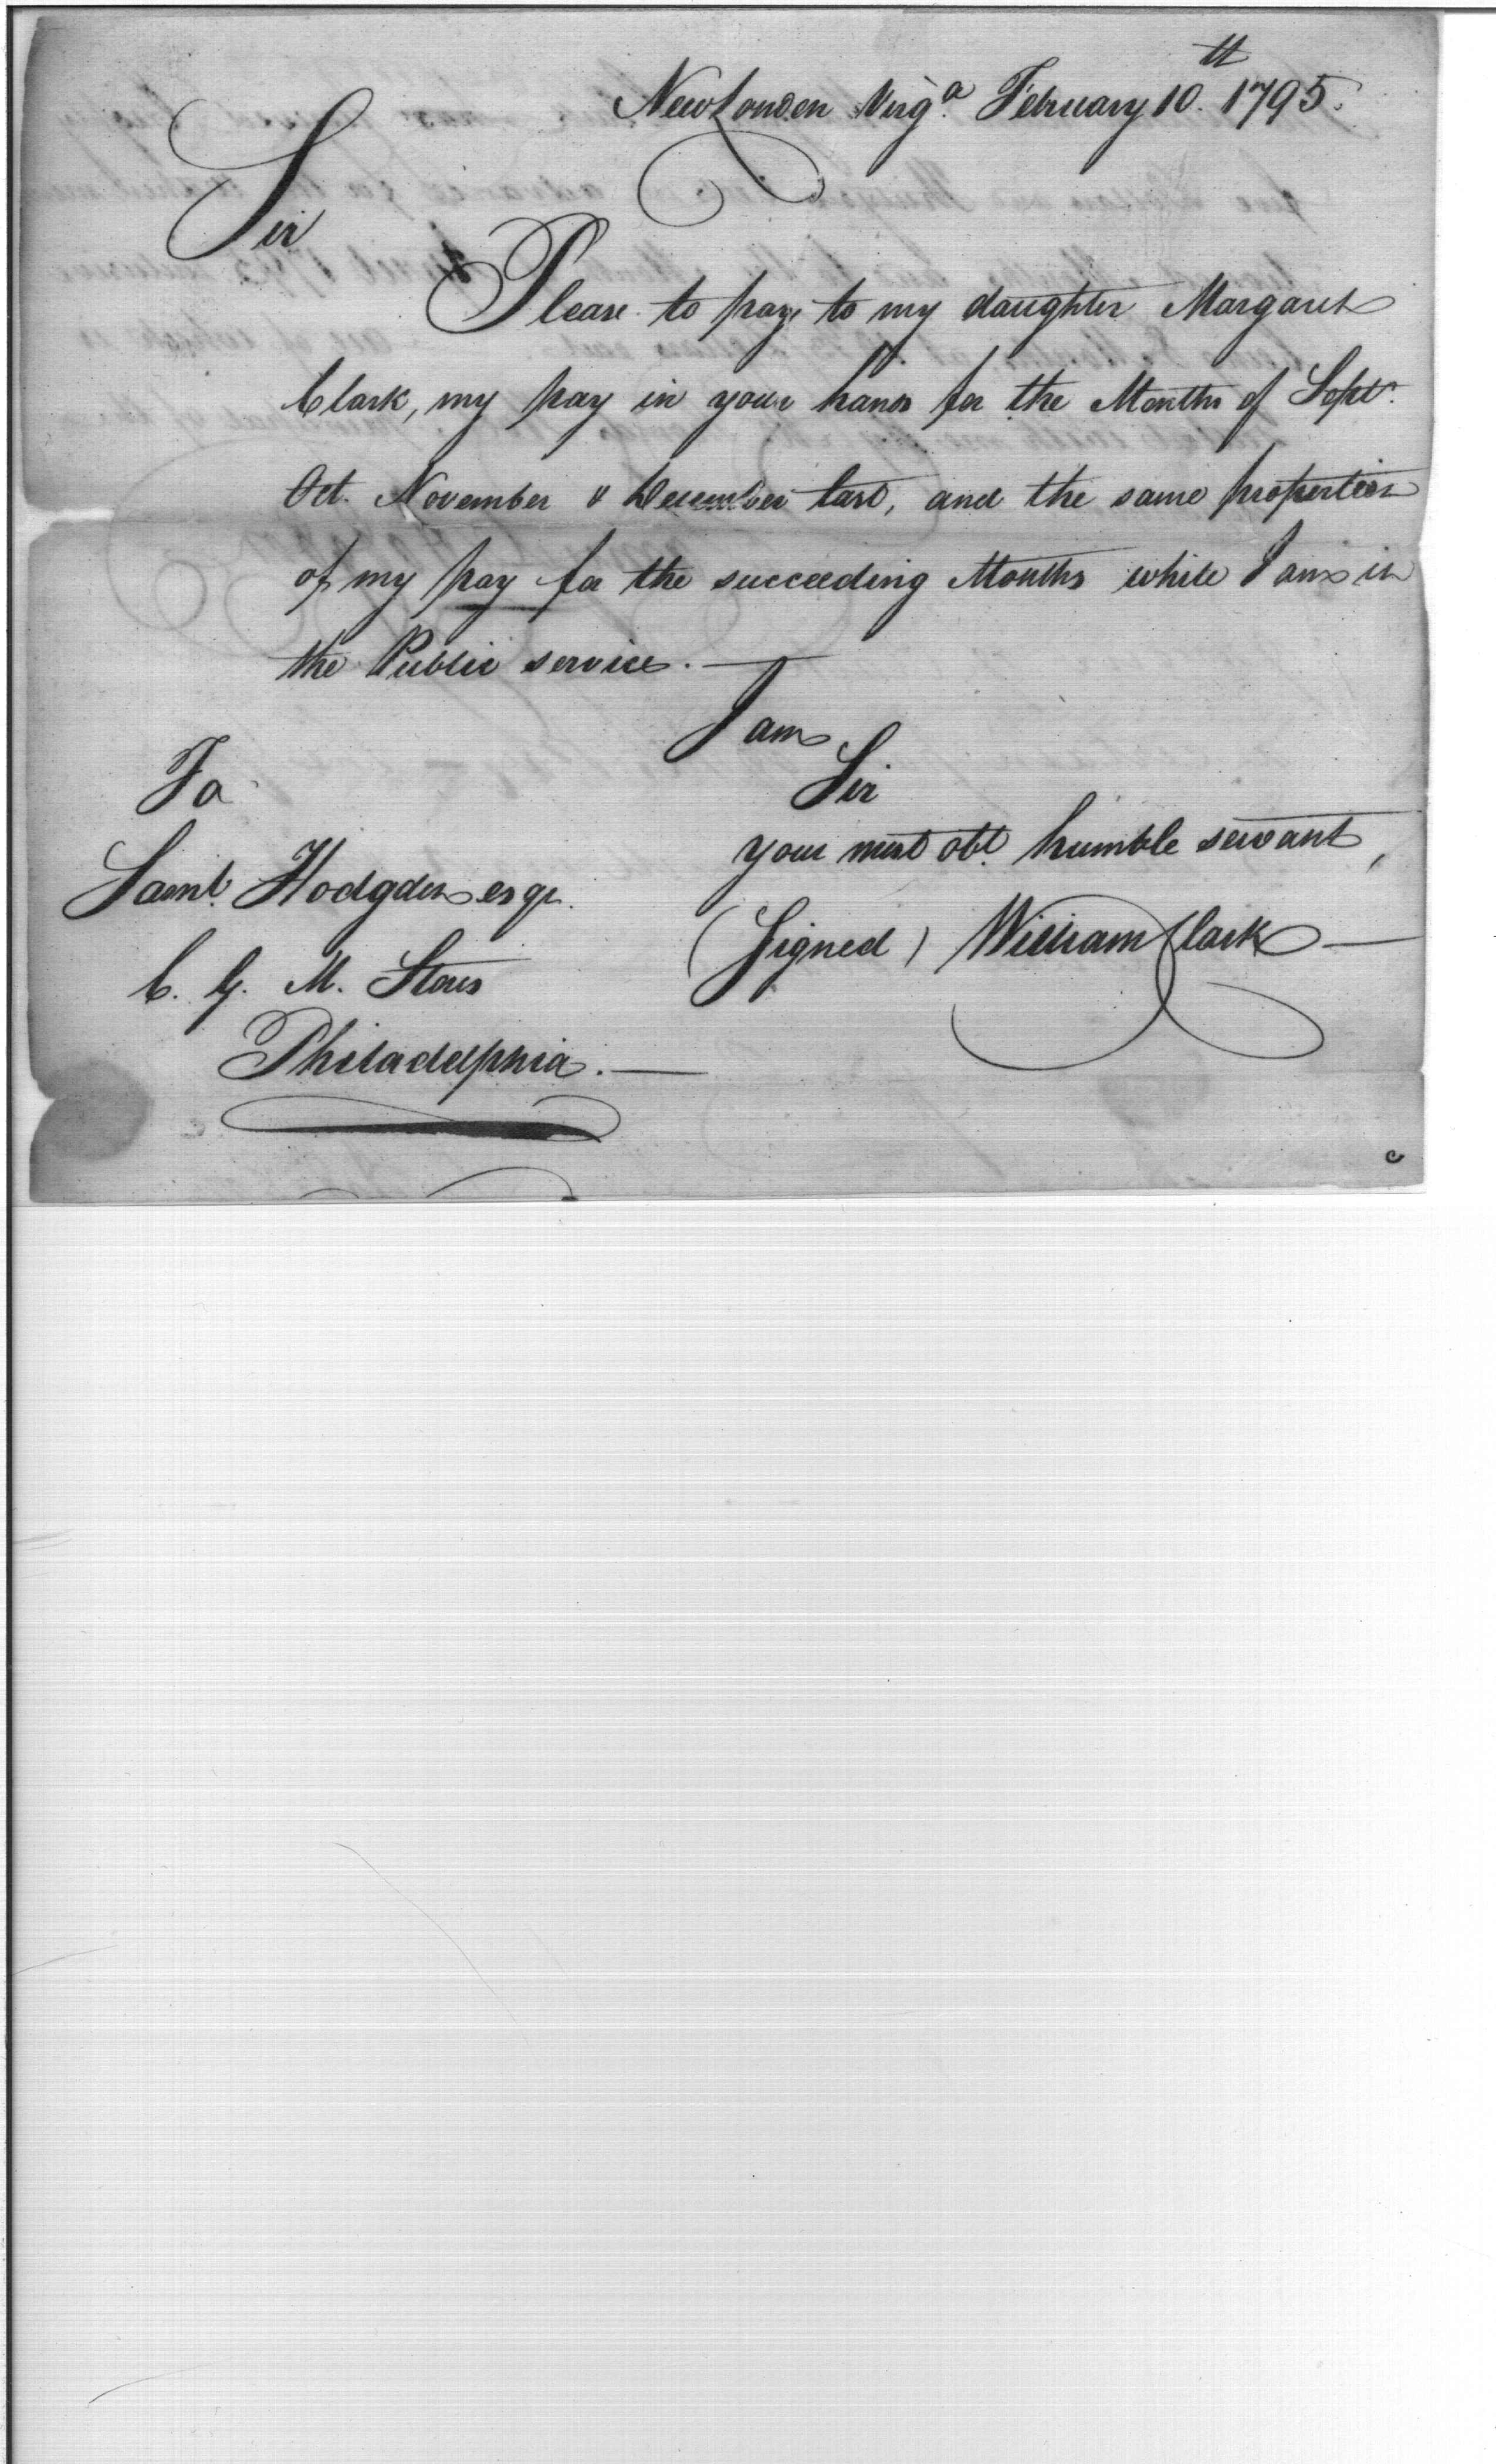 New London Virg.a February 10.th 1795.
Sir
Please to pay to my daughter Margaret
Clark, my pay in your hands for the Months of Sept.r
Oct. November & December last, and the same proportion
of my pay for the succeeding Months while I am in
the Public service. —
I am
Sir
your most obt. humble servant,
(Signed) William Clark —
To
Saml. Hodgdon esqr.
C. G. M. Stores
Philadelphia. —